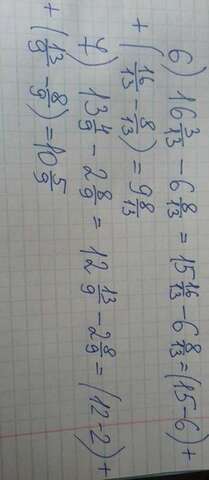 6) 16 3/13 - 6 8/13 = 15 16/13 - 6 8/13 = (15-6) +
+ (16/13 - 8/13) = 9 8/13
7) 13 4/9 - 2 8/9 = 12 13/9 - 2 8/9 = (12-2) +
+ (13/9 - 8/9) = 10 5/9